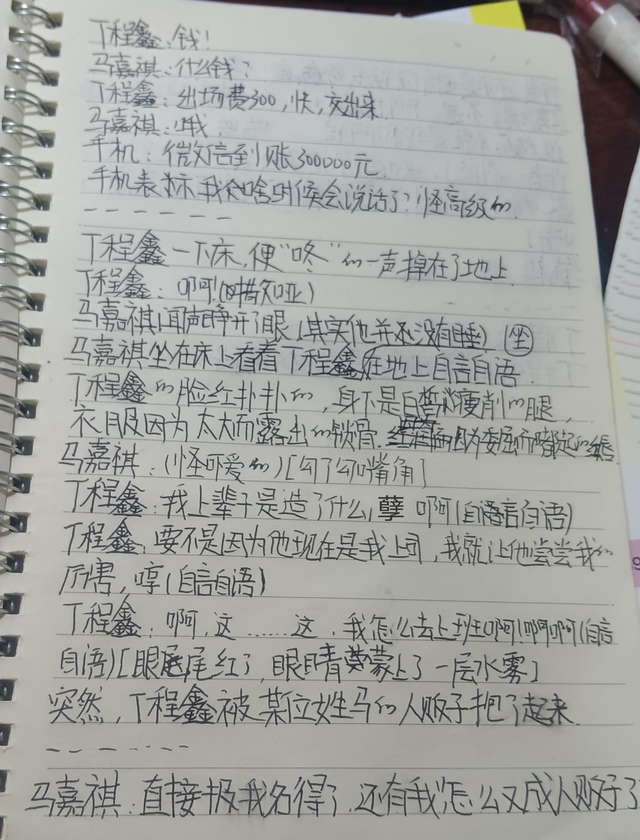 丁程鑫:钱!
马嘉祺:什么钱?
丁程鑫:出场费300,快,交出来
马嘉祺:哦,
手机:微信到账300000元
手机表示我啥时候会说话了?怪高级的
------
丁程鑫一下床,便"咚"的一声掉在了地上
丁程鑫:啊!(嘶哑)
马嘉祺闻声睁开了眼(其实他并还没有睡)(坐)
马嘉祺坐在床上看着丁程鑫在地上自言自语.
丁程鑫的脸红扑扑的,身下是白皙瘦削的腿,
衣服因为太大而露出的锁骨.因为委屈而嘟起的嘴
马嘉祺:(怪可爱的)[勾了勾嘴角]
丁程鑫:我上辈子是造了什么孽啊(自言自语)
丁程鑫:要不是因为他现在是我上司,我就让他尝尝我的
厉害,哼(自言自语)
丁程鑫:啊,这......这,我怎么去上班啊!啊啊(自言
自语)[眼尾红了,眼睛蒙上了一层水雾]
突然,丁程鑫被某位姓马的人贩子抱了起来.
------
马嘉祺:直接报我名得了,还有我怎么又成人贩子了